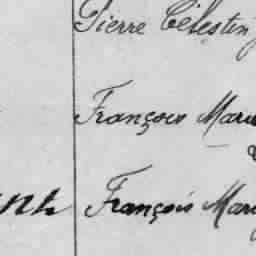 Pierre Célestin
François Mari
François Mari